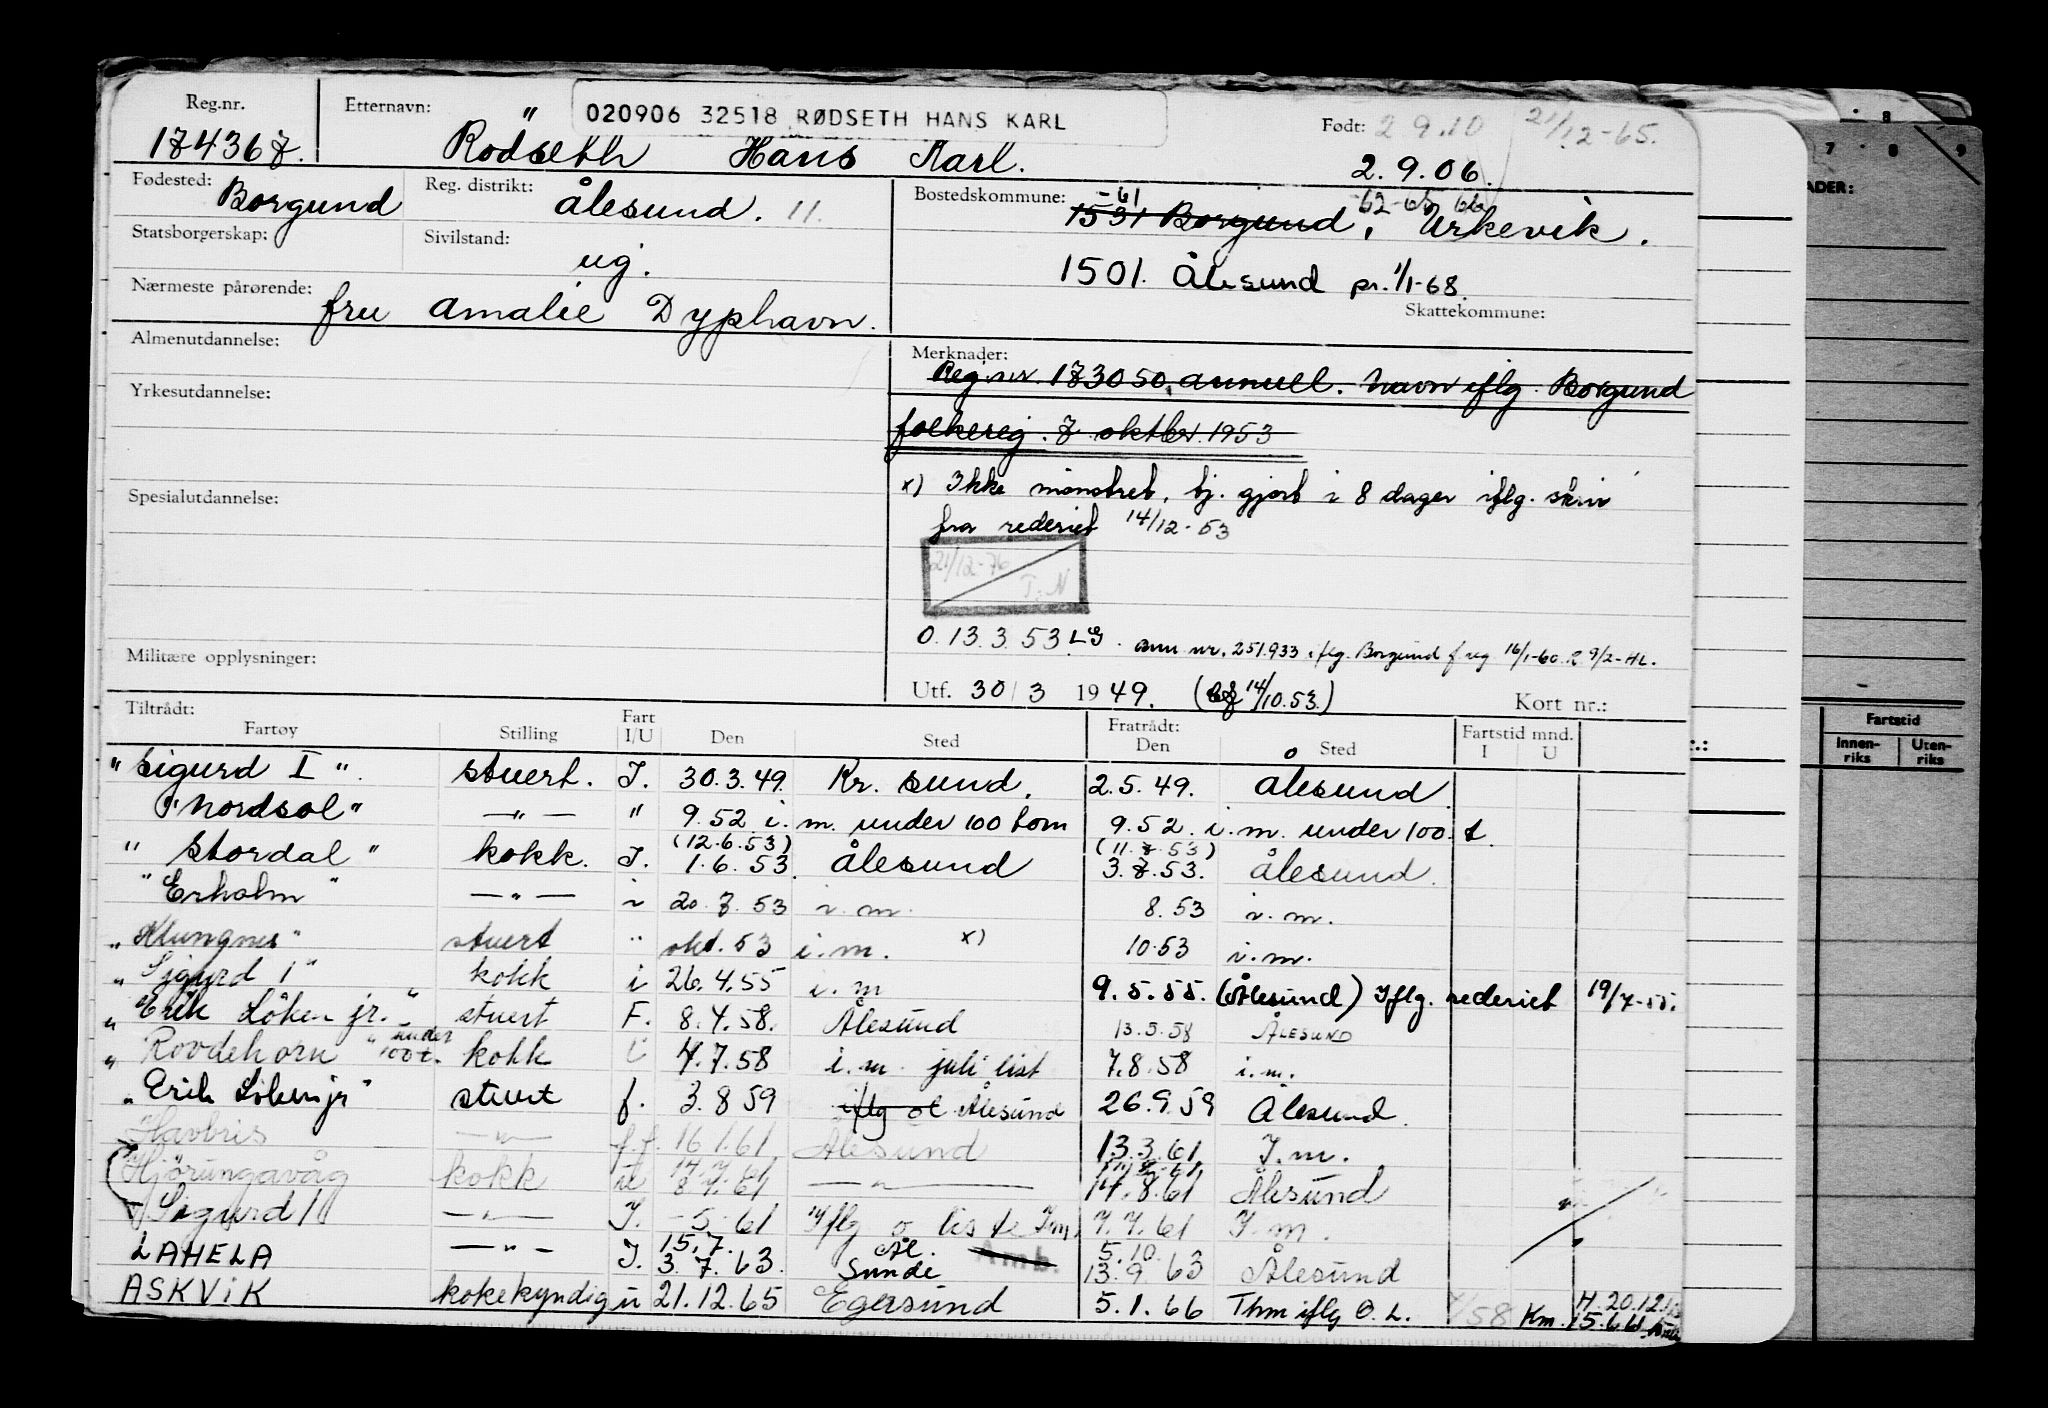 Reg.nr. Etternavn: 020906 32518 RØDSETH HANS KARL Født: 2 9.10 21/12-65.
174367. Rödseth Hans Karl. 2.9.06.
Fødested: Borgund Reg. distrikt: Ålesund. 11. Bostedskommune: -61 -62-65 66
1531 Borgund, Urkevik.
Statsborgerskap: Sivilstand: ug.
1501. Ålesund pr. 1/1-68.
Nærmeste pårørende: fru Amalie Dyphavn. Skattekommune:
Almenutdannelse: Merknader:
Reg.nr. 173050, annull. Navn iflg. Borgund
Yrkesutdannelse:
folkereg. 7 oktbr. 1953
Spesialutdannelse: x) Ikke mönstret, tj. gjort i 8 dager iflg. skriv
fra rederiet 14/12-53
21/12-76
T.N
0.13.3.53 LG. ann nr. 251.933 iflg. Borgund f reg 16/1-60. 9/2-HL.
Militære opplysninger:
Utf. 30/3 1949. (14/10.53.) Kort nr.:
Tiltrådt: Fratrådt: Fartstid mnd.
Fartøy Stilling Fart I/U Den Sted Den Sted I U
"Sigurd I". stuert. I. 30.3.49. Kr. sund. 2.5.49. Ålesund.
"Nordsol" —"— " 9.52 i. m. under 100 tonn 9.52. i. m. under 100. t.
(12.6.53) (11.7.53)
"Stordal" kokk. I. 1.6.53. Ålesund 3.7.53. Ålesund.
"Erholm" —"— i 20.7.53 i.m. 8.53 i.m.
"Klungnes" stuert " okt.53 i.m. x) 10.53 i.m.
"Sigurd 1" kokk i 26.4.55 i.m 9.5.55. (Ålesund) Iflg. rederiet 19/7-55.
"Erik Löken jr." stuert F. 8.4.58. Ålesund 13.5.58 ÅLESUND
"Rovdehorn" under 100 t. kokk i 4.7.58 i.m. juli list 7.8.58 i.m.
"Erik Löken jr" stuert f. 3.8 59 iflg ol Ålesund 26.9.59 Ålesund.
Havbris —"— f.f. 16.1.61. Ålesund 13.3.61 I.m.
Hjörungavåg kokk u 8.7.61 —"— 14.8.61 Ålesund
Sigurd 1 —"— I. -5-61 Iflg o liste I.m. 7.7.61 I.m.
15.7. Ål. Amb. 5.10.
LAHELA —"— I. 3.7.63. Sunde 13.9 63 Ålesund
ASKVIK kokekyndig u 21.12.65 Egersund 5.1.66 Thm iflg O.L. /58 Km. H.20.12.
15.6.61
7 8 9
ADER:
Fartstid
Innen-riks Uten-riks